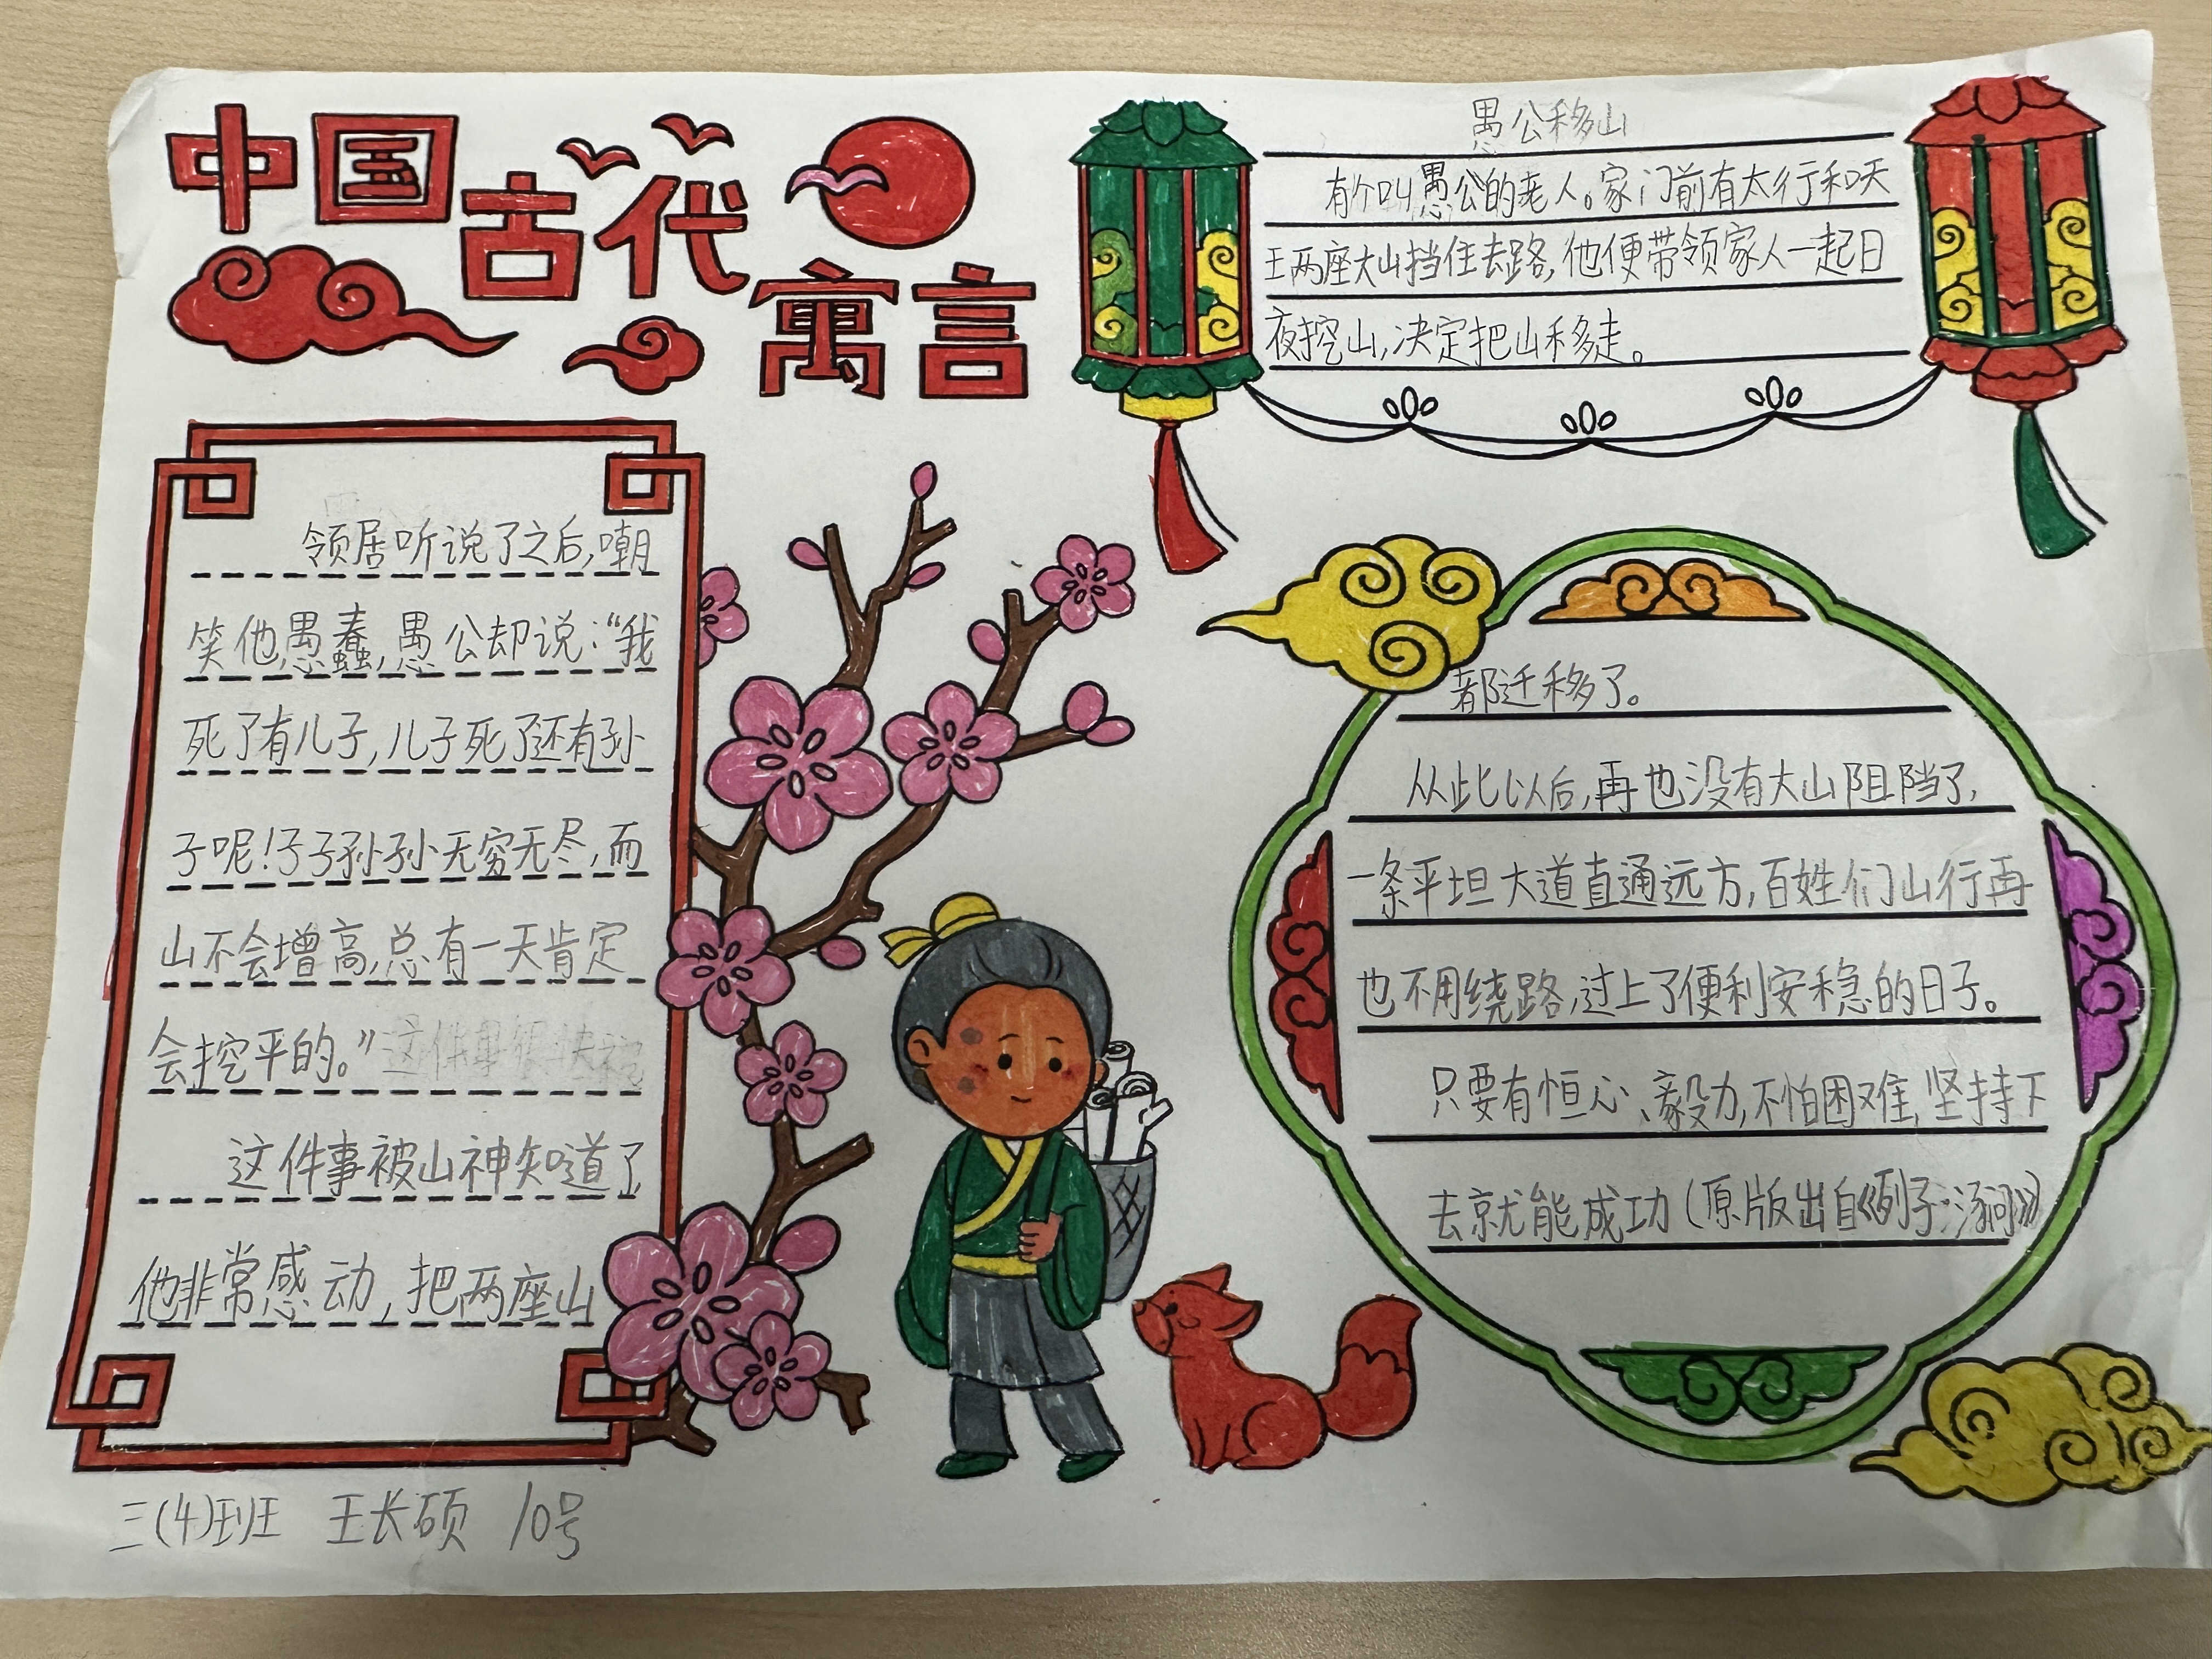 中国古代寓言
愚公移山
有个叫愚公的老人。家门前有太行和天
王两座大山挡住去路,他便带领家人一起日
夜挖山,决定把山移走。
领居听说了之后,嘲
笑他,愚蠢,愚公却说:“我
死了有儿子,儿子死了还有孙
子呢!子子孙孙无穷无尽,而
山不会增高,总有一天肯定
会挖平的。”
这件事被山神知道了,
他非常感动,把两座山
都迁移了。
从此以后,再也没有大山阻挡了,
一条平坦大道直通远方,百姓们山行再
也不用绕路,过上了便利安稳的日子。
只要有恒心、毅力,不怕困难,坚持下
去就能成功(原版出自《列子:汤问》)
三(4)班 王长硕 10号